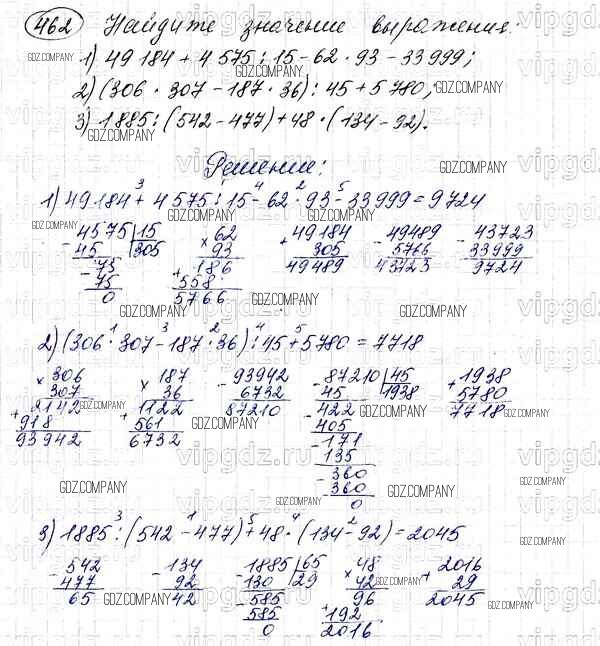 462 Найдите значение выражения:
1) 49 184 + 4 575 : 15 - 62 · 93 - 33 999;
2) (306 · 307 - 187 · 36) : 45 + 5 780;
3) 1885 : (542 - 477) + 48 · (134 - 92).
Решение:
1) 49 184 + 4 575 : 15 - 62 · 93 - 33 999 = 9724
3 1 4 2 5
4575 15 62 49184 49489 43723
- 45 305 × 93 + 305 - 5766 - 33999
- 75 186 49489 43723 9724
75 + 558
0 5766
2) (306 · 307 - 187 · 36) : 45 + 5780 = 7718
1 3 2 4 5
× 306 × 187 - 93942 - 87210 45 + 1938
307 36 6732 45 1938 5780
+ 2142 + 1122 87210 - 422 7718
918 561 405
93942 6732 - 171
135
- 360
360
0
3) 1885 : (542 - 477) + 48 · (134 - 92) = 2045
3 1 5 4 2
- 542 - 134 - 1885 65 × 48 + 2016
477 92 130 29 42 29
65 42 - 585 96 2045
585 + 192
0 2016
GDZ.COMPANY
vipgdz.ru